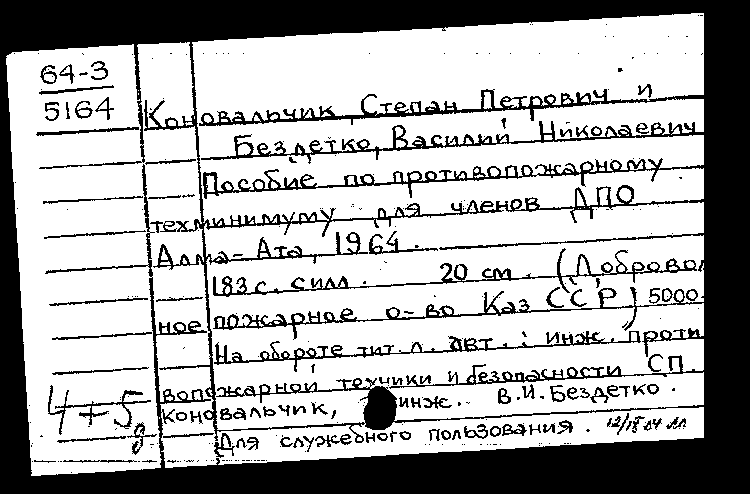 64-3
5164
Коновальчик, Степан Петрович и
Бездетко, Василий Николаевич
Пособие по противопожарному
техминимуму для членов ДПО
Алма-Ата, 1964.
183 с. с илл. 20 см. (Доброволь
ное пожарное о-во Каз ССР) 5000-
На обороте тит. л. авт.: инж. проти
вопожарной техники и безопасности СП.
Коновальчик, инж. В.И. Бездетко.
4+5д
Для служебного пользования.